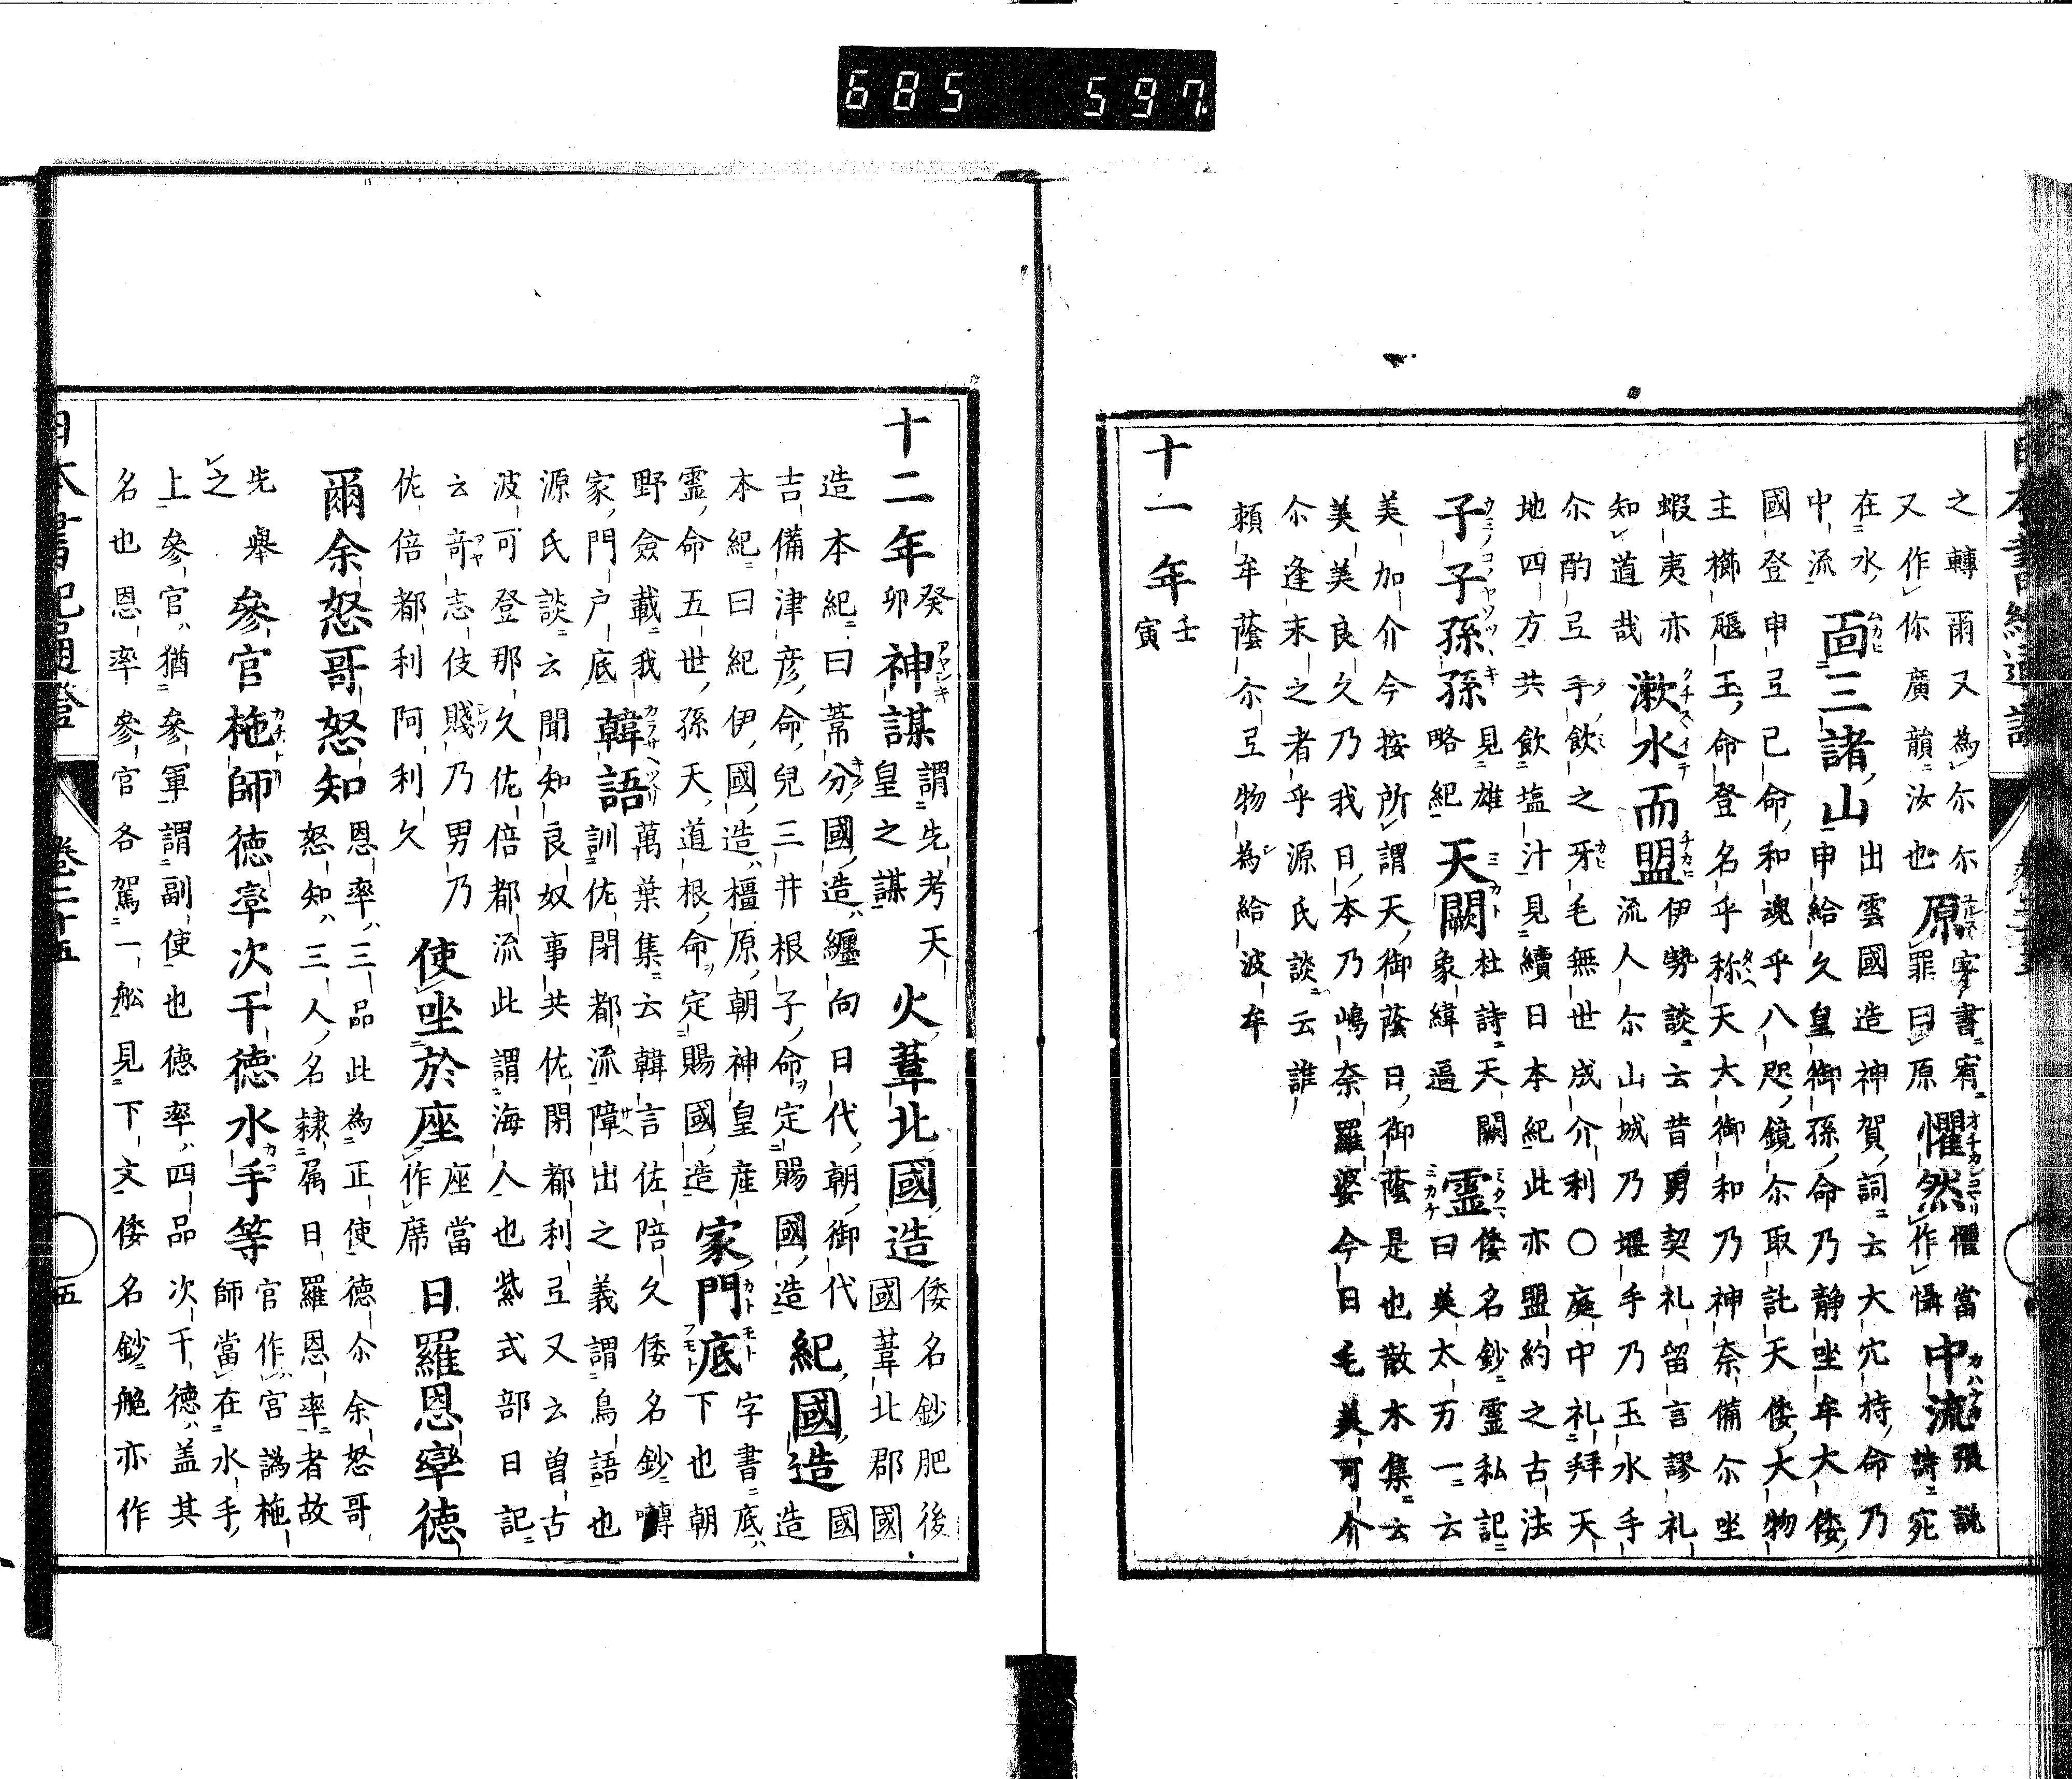 685 597
之轉爾又為尔尔
又作你廣韻汝也
原
字書宥
罪曰原
懼然
懼當
作懾
中流
張説
詩宛
在水
中流
面三諸山
出雲國造神賀詞云大穴持命乃
申給久皇御孫命乃静坐牟大倭
國登申弖已命和魂乎八咫鏡尓取託天倭大物
主櫛𤭖玉命登名乎称天大御和乃神奈備尓坐
蝦夷亦
知道哉
漱水而盟
伊勢談云昔男契礼留言謬礼
流人尓山城乃堰手乃玉水手
尓酌弖手飲之牙毛無世成介利〇庭中礼拜天
地四方共飲塩汁見續日本紀此亦盟約之古法
子子孫孫
見雄
略紀
天闕
杜詩天闕
象緯逼
霊
倭名鈔霊私記
曰美太万一云
美加介今按所謂天御蔭日御蔭是也散木集云
美美良久乃我日本乃嶋奈羅婆今日毛美可介
尓逢末之者乎源氏談云誰
頼牟蔭尓弖物為給波牟
十一年
壬
寅
十二年
癸
卯
神謀
謂先考天
皇之謀
火葦北國造
倭名鈔肥後國
國葦北郡國
造本紀曰葦分國造纏向日代朝御代
吉備津彦命兒三井根子命定賜國造
紀國造
國
造
本紀曰紀伊國造橿原朝神皇産
霊命五世孫天道根命定賜國造
家門底
字書底
下也朝
野僉載我
家門户底
韓語
萬葉集云韓言佐陪久倭名鈔囀
訓佐閇都流障出之義謂鳥語也
源氏談云聞知良奴事共佐閇都利弖又云曽古
波可登那久佐倍都流此謂海人也紫式部日記
云竒志伎賤乃男乃
佐倍都利阿利久
使坐於座
座當
作席
日羅恩率徳
爾余怒哥怒知
恩率三品此為正使徳尓余怒哥
怒知三人名隷属日羅恩率者故
先舉
之
參官柁師徳率次干徳水手等
官作宫譌柁
師當在水手
上參官猶參軍謂副使也徳率四品次干徳盖其
名也恩率參官各駕一舩見下文倭名鈔䑨亦作
日本書紀通證
卷二十五
五